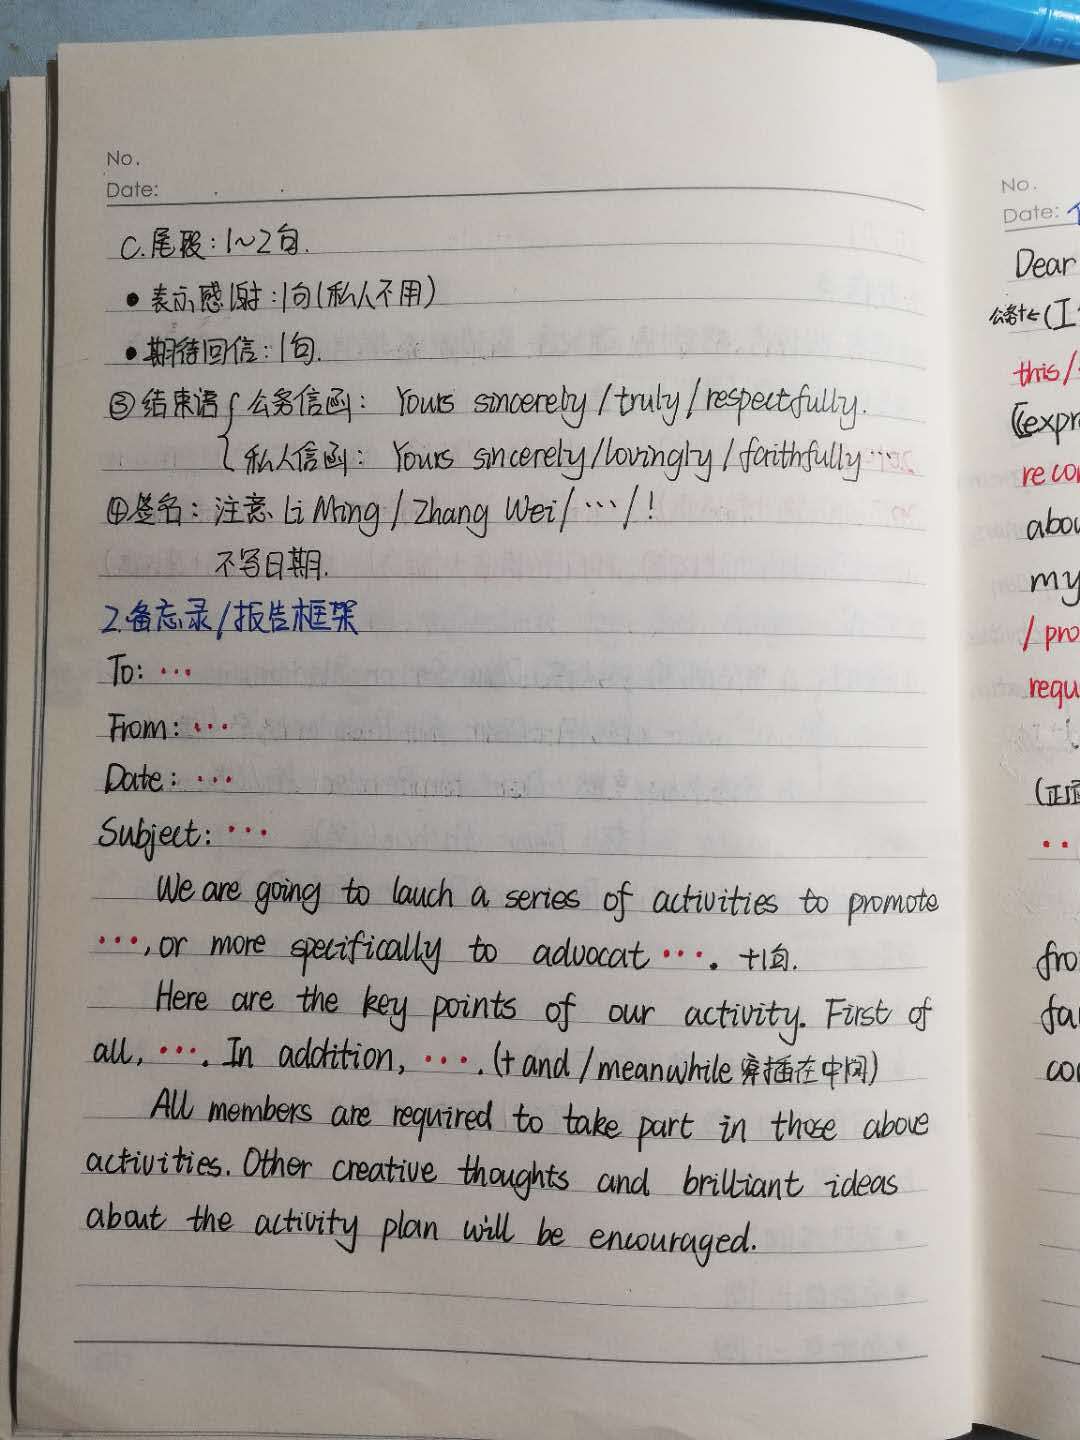 No.
Date:
C.尾段:1~2句.
• 表示感谢:1句(私人不用)
• 期待回信:1句.
③结束语{公务信函: Yours sincerely/truly/respectfully.
{私人信函: Yours sincerely/lovingly/faithfully…
④签名: 注意 Li Ming/Zhang Wei/…/!
不写日期.
2.备忘录/报告框架
To: …
From: …
Date: …
Subject: …
We are going to lauch a series of activities to promote
…, or more specifically to advocat …. +1句.
Here are the key points of our activity. First of
all, …. In addition, …. (+and/meanwhile穿插在中间)
All members are required to take part in those above
activities. Other creative thoughts and brilliant ideas
about the activity plan will be encouraged.
No.
Date:
Dear
公务信←(工
this/
(expre
recon
abou
my
/pro
requ
(正面
..
fro
fa
co